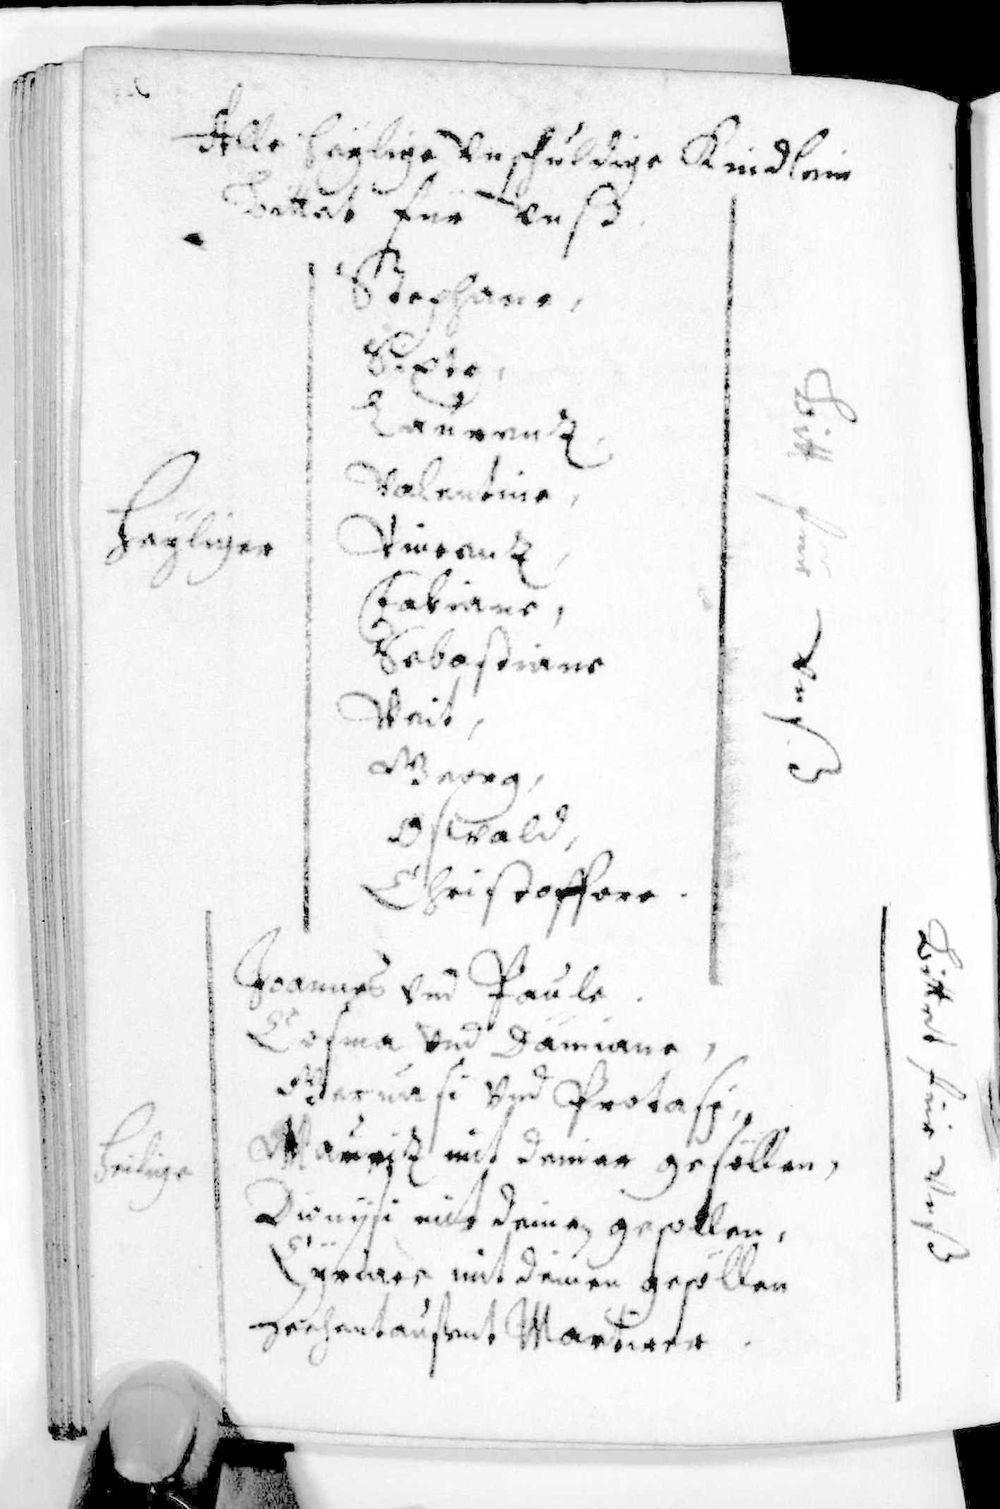 Alle heÿlige vnschuldige Kindlein
Bittet für vnß.
Heÿliger
Stephane,
Sixte,
Laurentz,
Valentine,
Vincentz,
Fabiane,
Sebastiane
Veit,
Georg,
Oswald,
Christoffore.
Bitt für vnß
Joannes vnd Paule.
Cosma vnd Damiane,
Geruasi vnd Protasi,
Heilige
Mauritz mit deinen gesöllen,
Dionÿsi mit deinen gesöllen,
Cyriace mit deinen gesöllen
zechentaußent Martirer.
Bittet für vnß